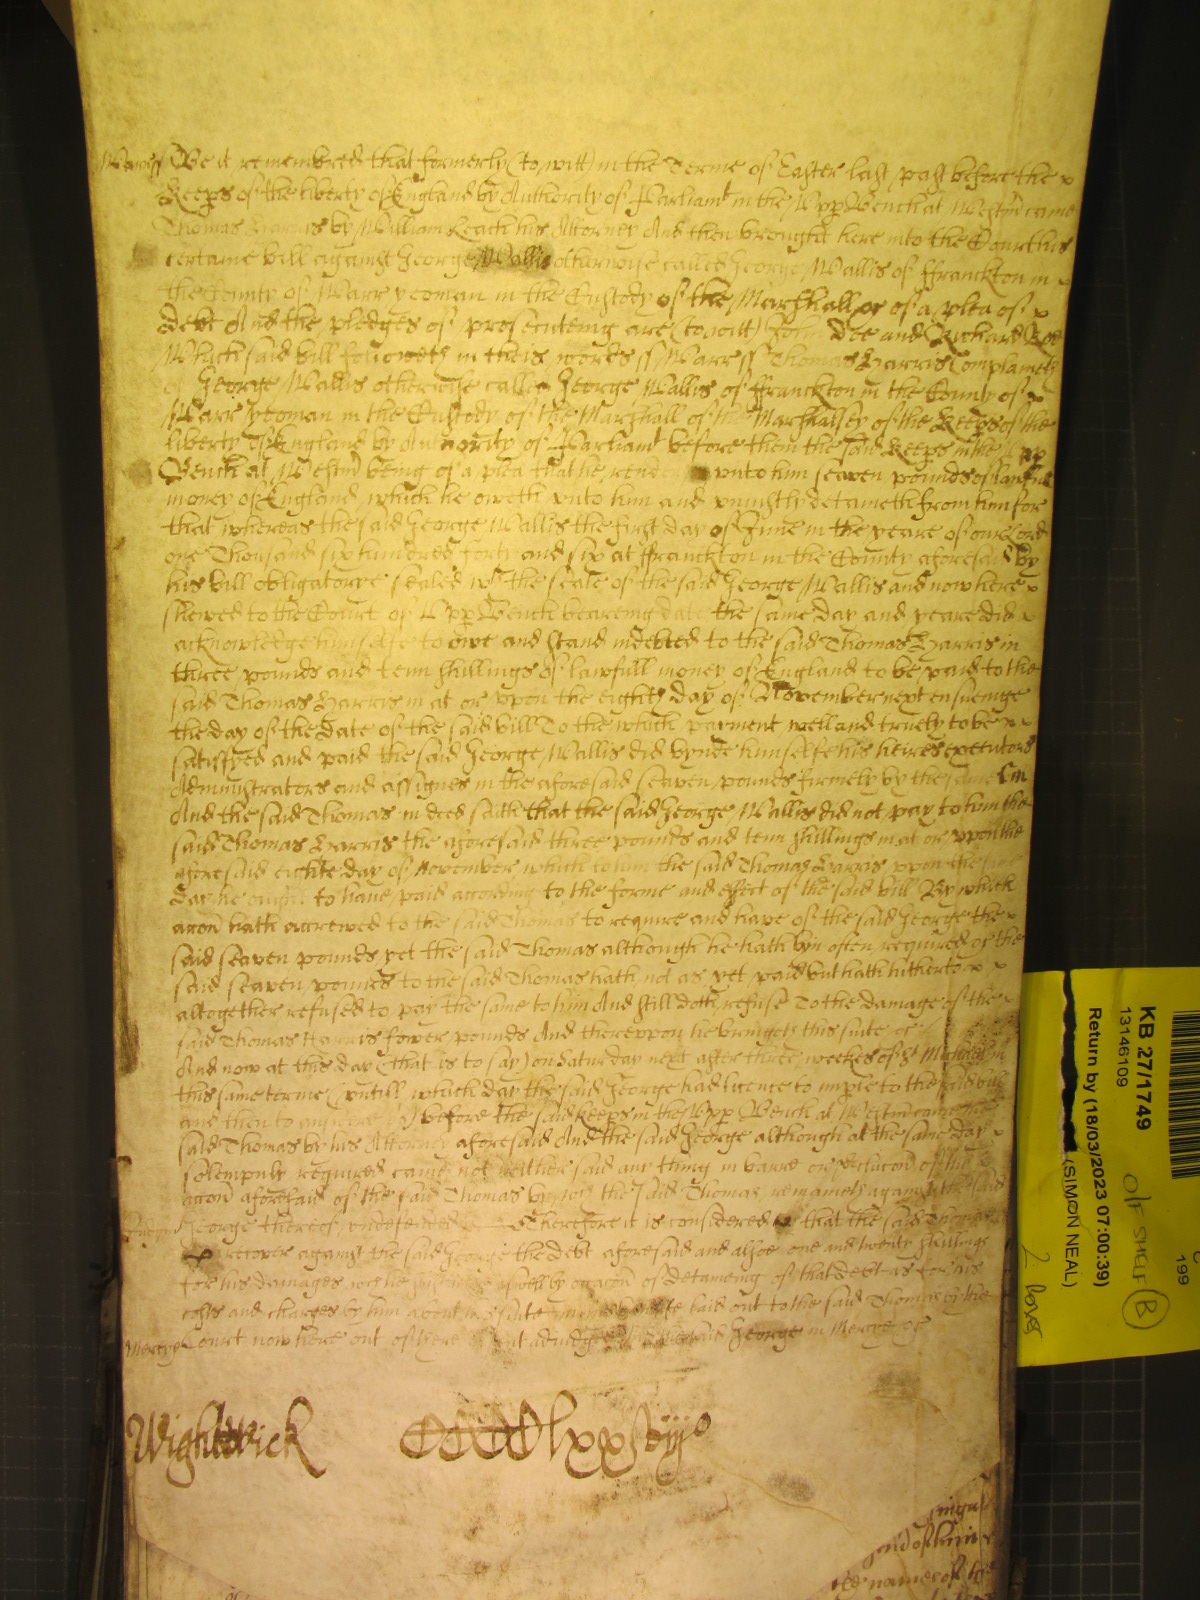 Warr ss Be it remembred that formerly (to witt) in the Terme of Easter last past before the
Keeps of the liberty of England by Authority of Parliamt in the Upp Bench at Westm̃ came
Thomas Harris by William Leach his Attorney And then brought here into the Court his
certaine bill against George Wallis otherwise called George Wallis of ffranckton in
the County of Warr yeoman in the Custody of the Marshall &c of a plea of
debt And the pledges of prosecuteing are (to witt) John Doe and Richard Roe
Which said bill followeth in theis words ss Warr ss Thomas Harris Complaineth
of George Wallis otherwise called George Wallis of ffranckton in the County of
Warr yeoman in the Custody of the Marshall of the Marshallsey of the Keeps of the
liberty of England by Authority of Parliamt before them the said Keeps in the Upp
Bench at Westm̃ being of a plea that he render unto him seaven pounds of lawfull
money of England which he oweth unto him and uniustly detaineth from him for
that whereas the said George Wallis the first day of June in the yeare of our Lord
one Thousand six hundred forty and six at ffranckton in the County aforesaid by
his bill obligatorye sealed wth the seale of the said George Wallis and now here
shewed to the Court of Upp Bench beareing date the same day and yeare did
acknowledge himselfe to owe and stand indebted to the said Thomas Harris in
three pounds and tenn shillings of lawfull money of England to be paid to the
said Thomas Harris in at or upon the eighth day of November next ensueinge
the day of the date of the said bill To the which payment well and truely to be
satisfyed and paid the said George Wallis did bynde himselfe his heires executors
Administrators and assignes in the aforesaid seaven pounds firmely by the same bill
And the said Thomas in deed saith that the said George Wallis did not pay to him the
said Thomas Harris the aforesaid three pounds and tenn shillings in at or upon the
aforesaid eighte day of November which to him the said Thomas Harris upon the same
day he ought to have paid according to the forme and effect of the said bill By which
accon hath accrewed to the said Thomas to require and have of the said George the
said seaven pounds yet the said George although he hath byn often required of the
said seaven pounds to the said Thomas hath not as yet paid but hath hitherto
altogether refused to pay the same to him And still doth refuse To the damage of the
said Thomas Harris fower pounds And thereupon he bringeth this suite &c
And now at this day (that is to say) on Saturday next after three weekes of St Michael in
this same terme (untill which day the said George had licence to imple to the said bill
and then to answere &c) before the said Keeps in the Upp Bench at Westm̃ came the
said Thomas by his Attorney aforesaid And the said George although at the same day
solempnly required came not neither said any thing in barre or preclucon of the
accon aforesaid of the said Thomas by wch the said Thomas remaineth against the said
George thereof undefended Therefore it is considered that the said Thomas
recover against the said George the debt aforesaid and alsoe one and twenty shillings
for his damages which he aswell by occacon of detaineing of that debt as for his
costs and charges by him about his suite laid out to the said Thomas by the
Mercye Court now here out of there adiudged And the said George in Mercye &c
Wightwick CCCClxxviijo
ingu
and of him
the names of the
KB 27/1749
13146109
Return by (18/03/2023 07:00:39)
(SIMON NEAL)
O/F SHELF B
2 boxes
199